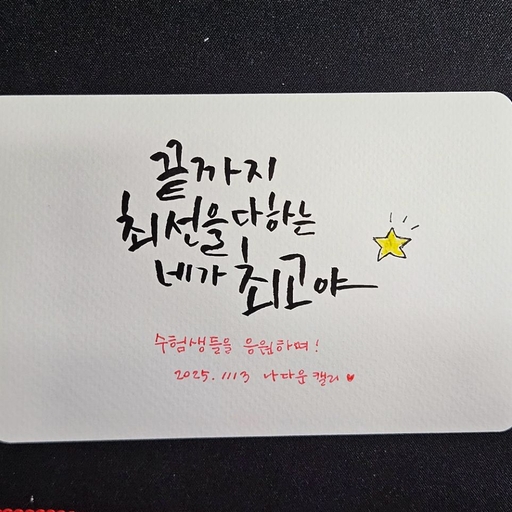 끝까지
최선을 다하는
네가 최고야
수험생들을 응원하며!
2025. 1113 나다운 캘리